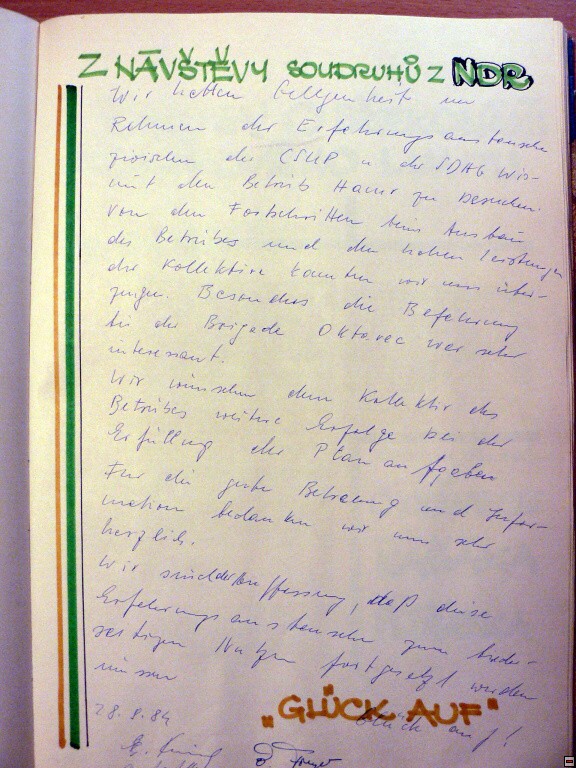 Z NÁVŠTĚVY SOUDRUHŮ Z NDR
Wir hatten Gelegenheit im
Rahmen der Erfahrungsaustausche
zwischen der ČSUP u der SDAG Wis-
mut den Betrieb Hamr zu besuchen.
Von den Fortschritten beim Ausbau
des Betriebes und den hohen Leistungen
der Kollektive konnten wir uns über-
zeugen. Besonders die Befahrung
bei der Brigade Oktavec war sehr
interessant.
Wir wünschen dem Kollektiv des
Betriebes weitere Erfolge bei der
Erfüllung der Planaufgaben
Für die gute Betreuung und Infor-
mation bedanken wir uns sehr
herzlich.
Wir sind der Auffassung, daß diese
Erfahrungsaustausche zum beider-
seitigen Nutzen fortgesetzt werden
müssen
Glück auf!
„GLÜCK AUF"
28.9.84